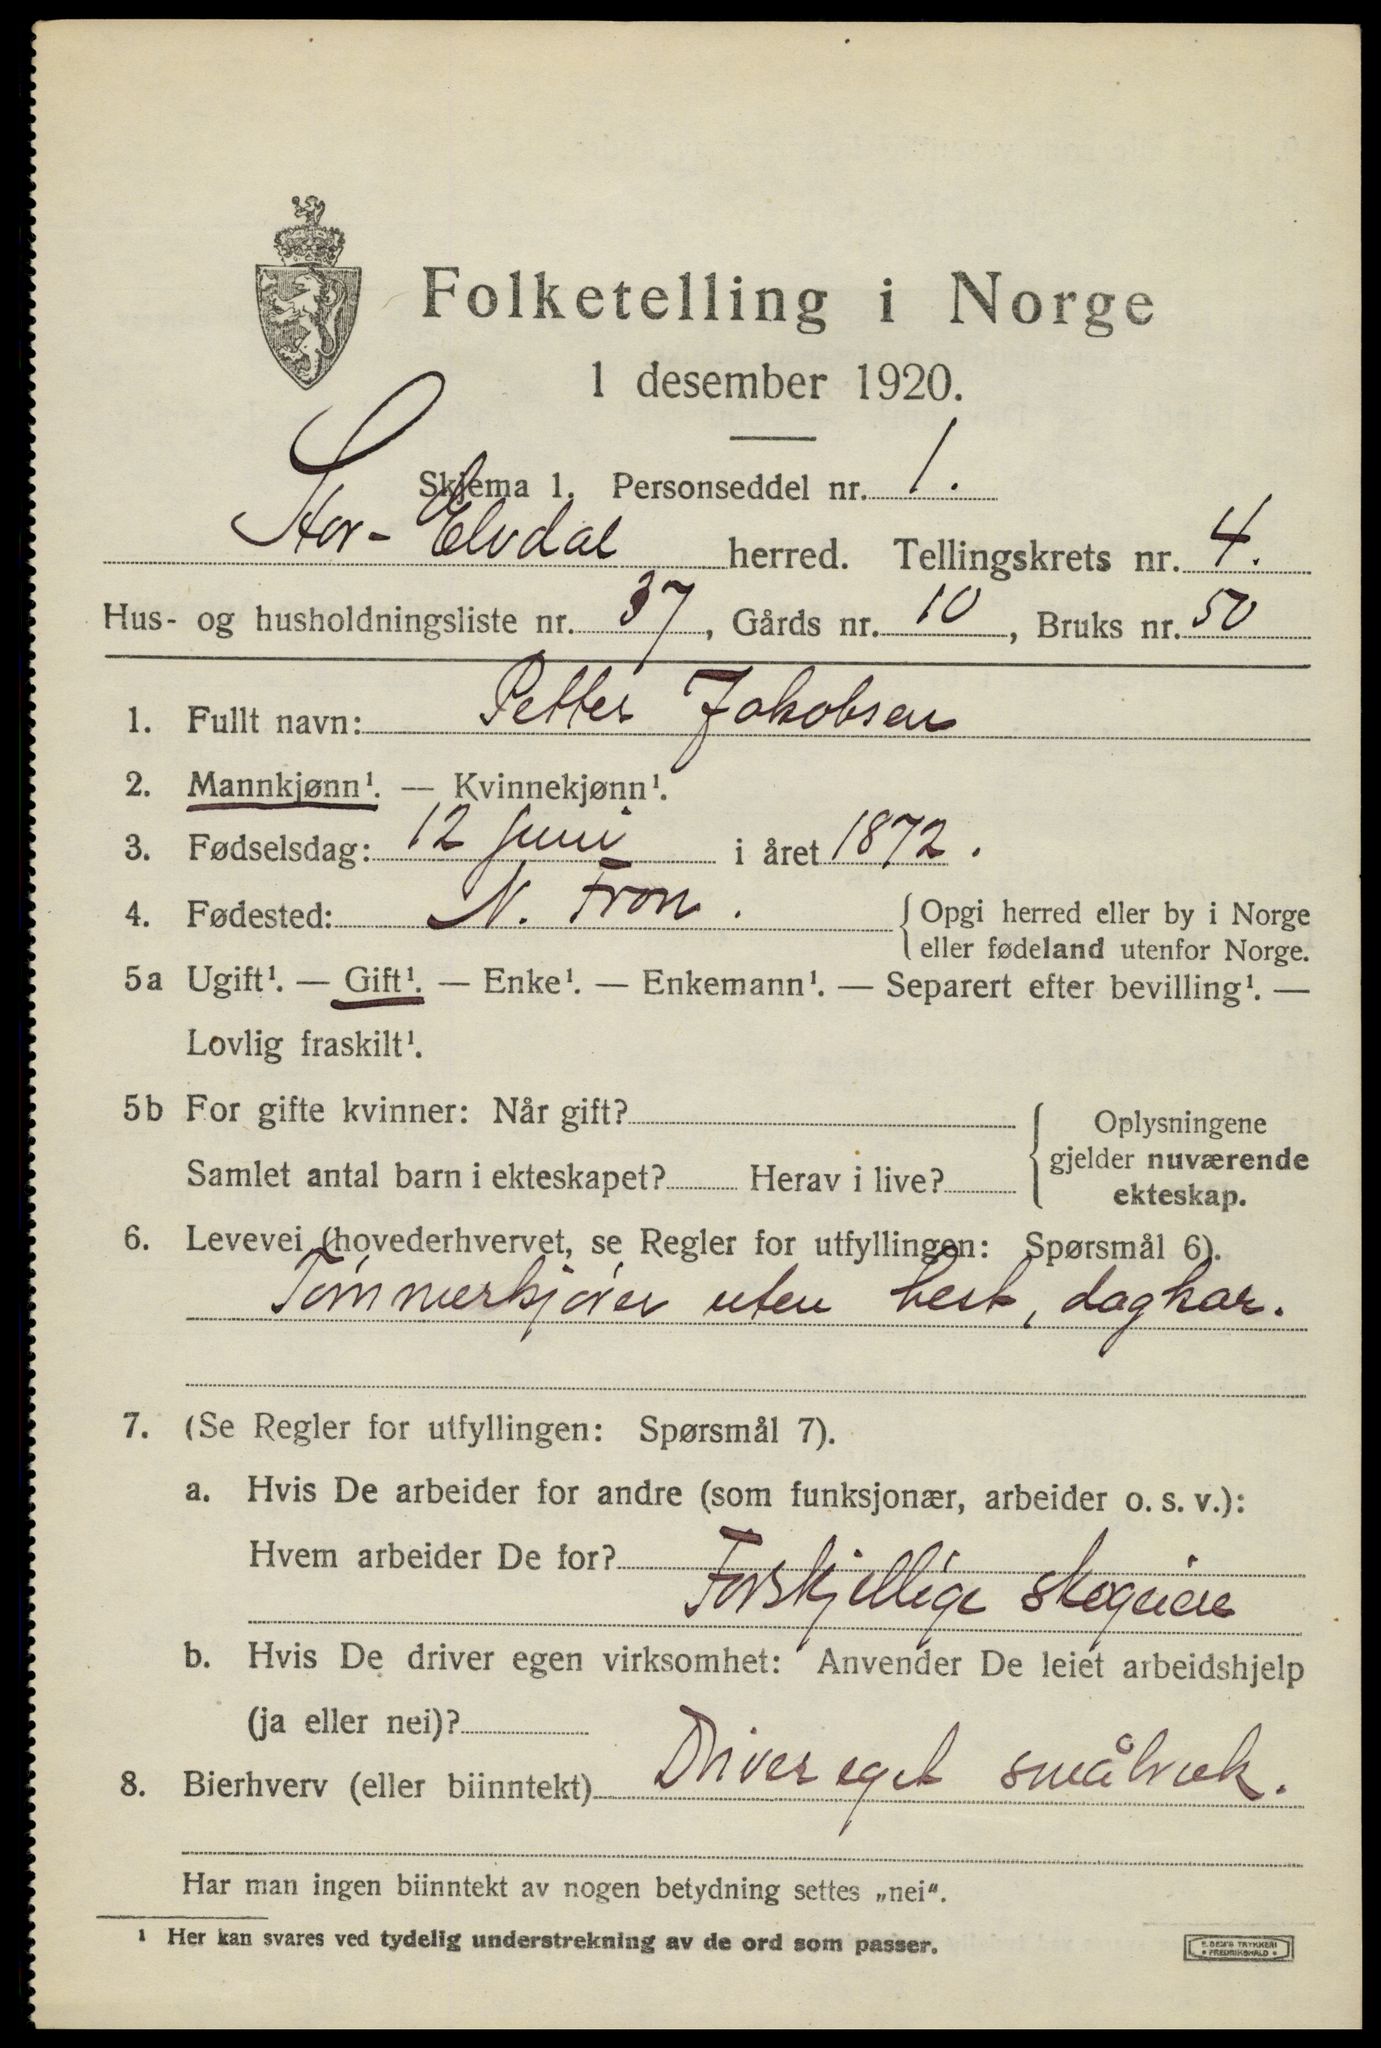 Folketelling i Norge
1 desember 1920.
Skjema 1. Personseddel nr. 1.
Stor-Elvdal herred. Tellingskrets nr. 4.
Hus- og husholdningsliste nr. 37, Gårds nr. 10, Bruks nr. 50
1. Fullt navn: Petter Jakobsen
2. Mannkjønn¹. — Kvinnekjønn¹.
3. Fødselsdag: 12 juni i året 1872.
4. Fødested: N. Fron. Opgi herred eller by i Norge
eller fødeland utenfor Norge.
5a Ugift¹. — Gift¹. — Enke¹. — Enkemann¹. — Separert efter bevilling¹. —
Lovlig fraskilt¹.
5b For gifte kvinner: Når gift?
Samlet antal barn i ekteskapet? Herav i live?
Oplysningene
gjelder nuværende
ekteskap.
6. Levevei (hovederhvervet, se Regler for utfyllingen: Spørsmål 6).
Tømmerkjører uten hest, dagkar.
7. (Se Regler for utfyllingen: Spørsmål 7).
a. Hvis De arbeider for andre (som funksjonær, arbeider o. s. v.):
Hvem arbeider De for?
Forskjellige skogeiere
b. Hvis De driver egen virksomhet: Anvender De leiet arbeidshjelp
(ja eller nei)?
8. Bierhverv (eller biinntekt) Driver eget småbruk.
Har man ingen biinntekt av nogen betydning settes „nei“.
¹ Her kan svares ved tydelig understrekning av de ord som passer.
E. DEM'S TRYKKERI
• FREDRIKSHALD •